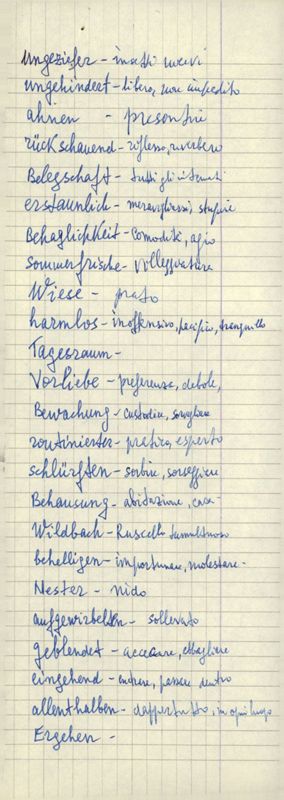 Ungeziefer - insetti nocivi
ungehindert - libero, non impedito
ahnen - presentire
rückschauend - riflesso, riverbero
Belegschaft - tutti gli
erstaunlich - meravigliarsi, stupire
Behaglichkeit - comodità, agio
Sommerfrische - villeggiatura
Wiese - prato
harmlos - inoffensivo, pacifico, tranquillo
Tagesraum -
Vorliebe - preferenza, debole,
Bewachung - custodire, sorvegliare
routinierter - pratico, esperto
schlürften - sorbire, sorseggiare
Behausung - abitazione, casa -
Wildbach - Ruscello tumultuoso
behelligen - importunare, molestare -
Nester - nido
aufgewirbelten - sollevato
geblendet - accecare, abbagliare
eingehend - entrare, passare dentro
allenthalben - dappertutto, in ogni luogo
Ergehen -